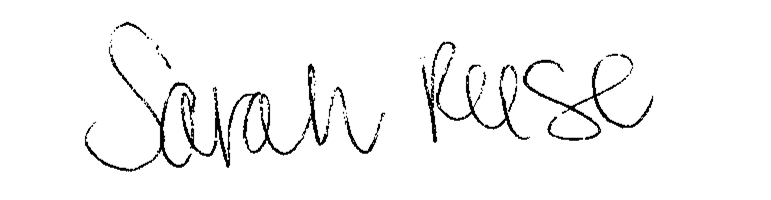 Sarah Reese